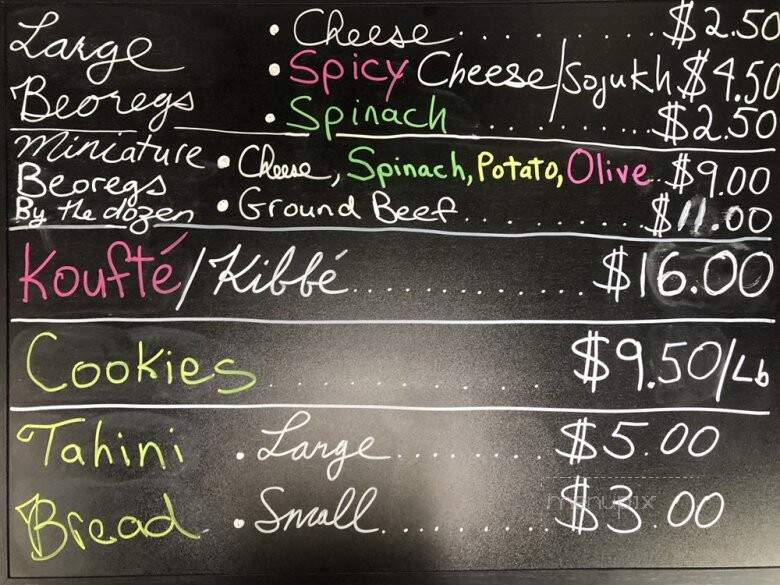 Large • Cheese............$2.50
Beoregs • Spicy Cheese/Sojukh $4.50
• Spinach............$2.50
Miniature • Cheese, Spinach, Potato, Olive..$9.00
Beoregs
By the dozen • Ground Beef............$11.00
Koufté/Kibbé............$16.00
Cookies............$9.50/Lb
Tahini • Large............$5.00
Bread • Small............$3.00
menupix